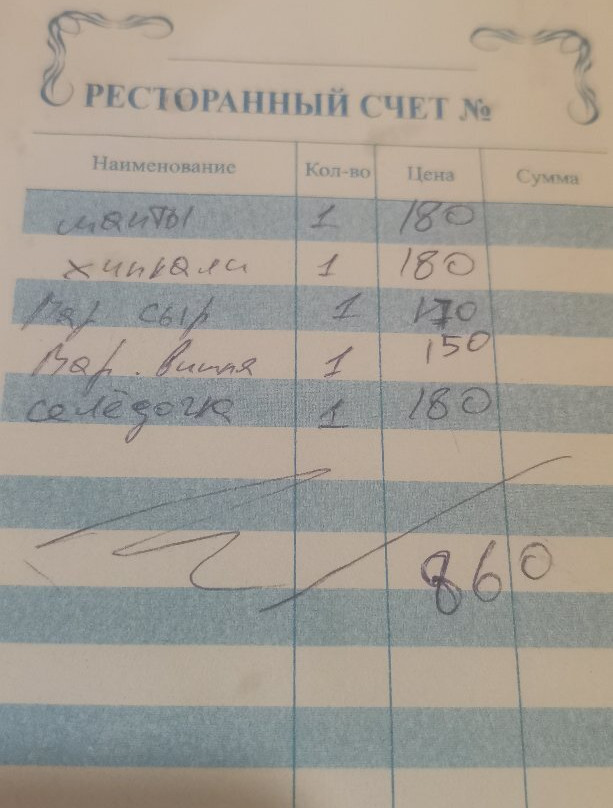 РЕСТОРАННЫЙ СЧЕТ №
Наименование Кол-во Цена Сумма
манты 1 180
хинкали 1 180
Вар. сыр 1 170
Вар. вишня 1 150
селёдочка 1 180
860